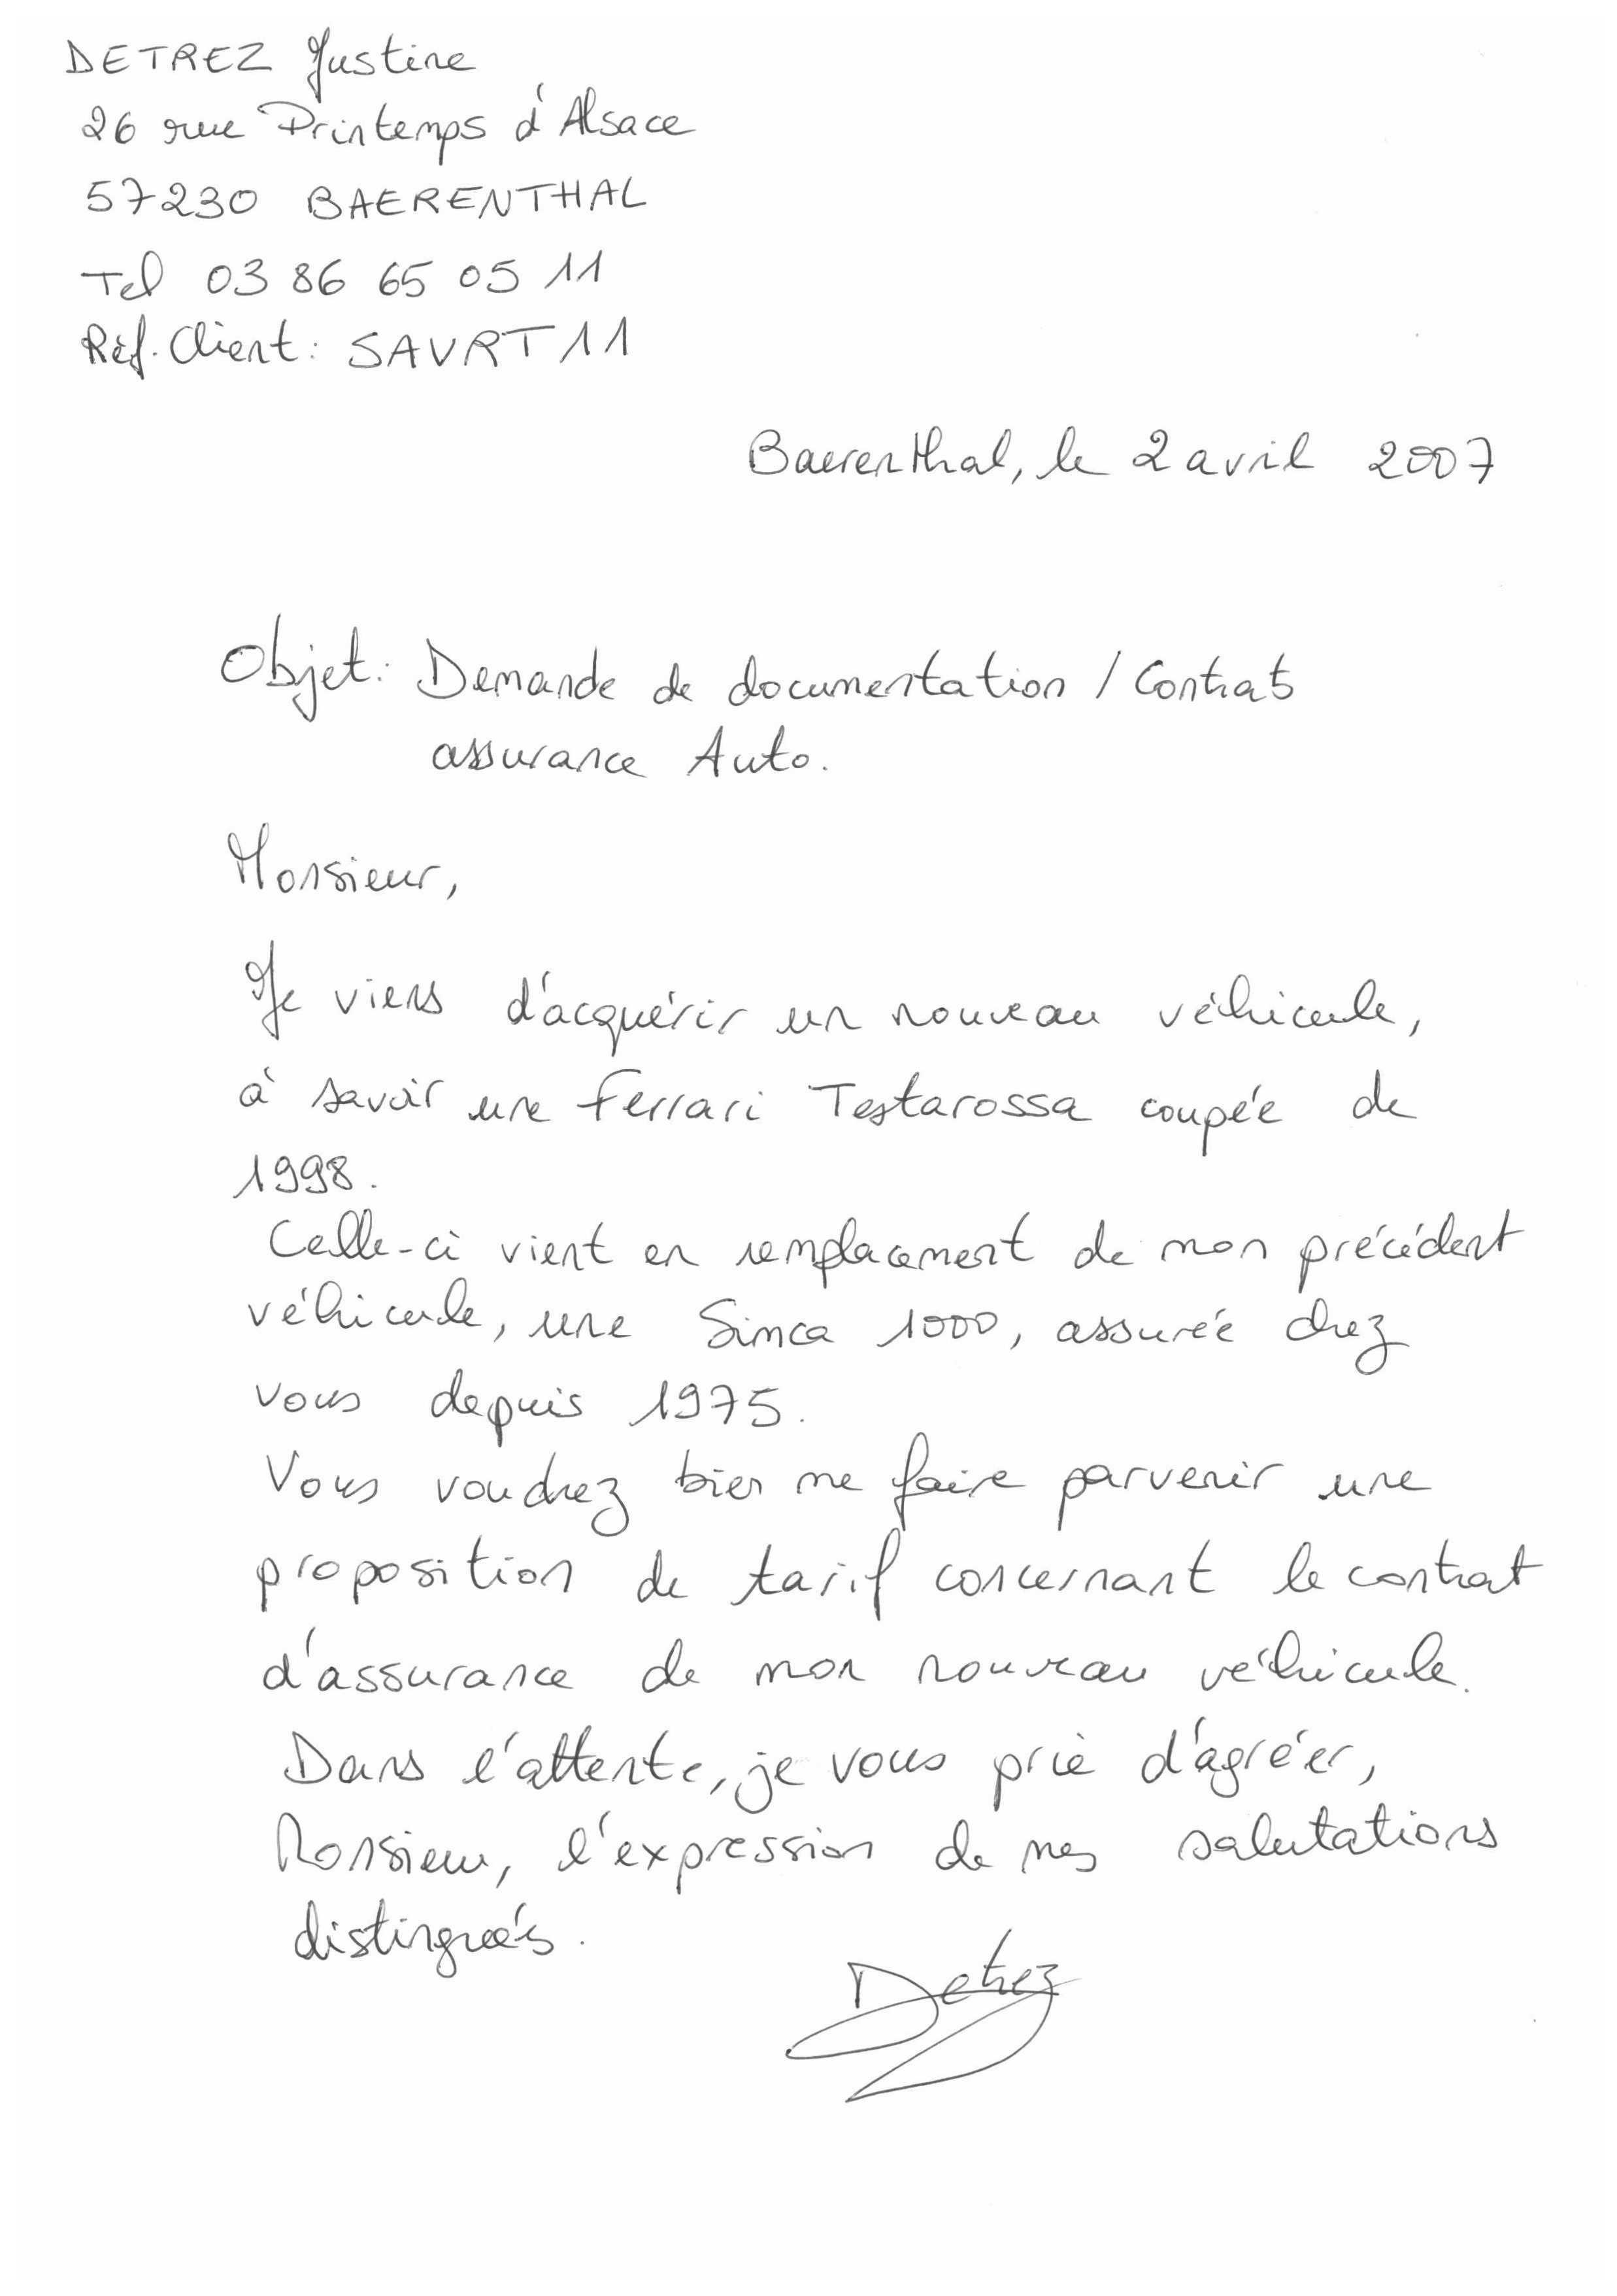 DETREZ Justine
26 rue Printemps d'Alsace
57230 BAERENTHAL
Tel 03 86 65 05 11
Réf. Client : SAVRT11
Baerenthal, le 2 avril 2007
Objet : Demande de documentation / Contrat
assurance Auto.
Monsieur,
Je viens d'acquérir un nouveau véhicule,
à savoir une Ferrari Testarossa coupée de
1998.
Celle-ci vient en remplacement de mon précédent
véhicule, une Simca 1000, assurée chez
vous depuis 1975.
Vous voudrez bien me faire parvenir une
proposition de tarif concernant le contrat
d'assurance de mon nouveau véhicule.
Dans l'attente, je vous prie d'agréer,
Monsieur, l'expression de mes salutations
distinguées.
Detrez